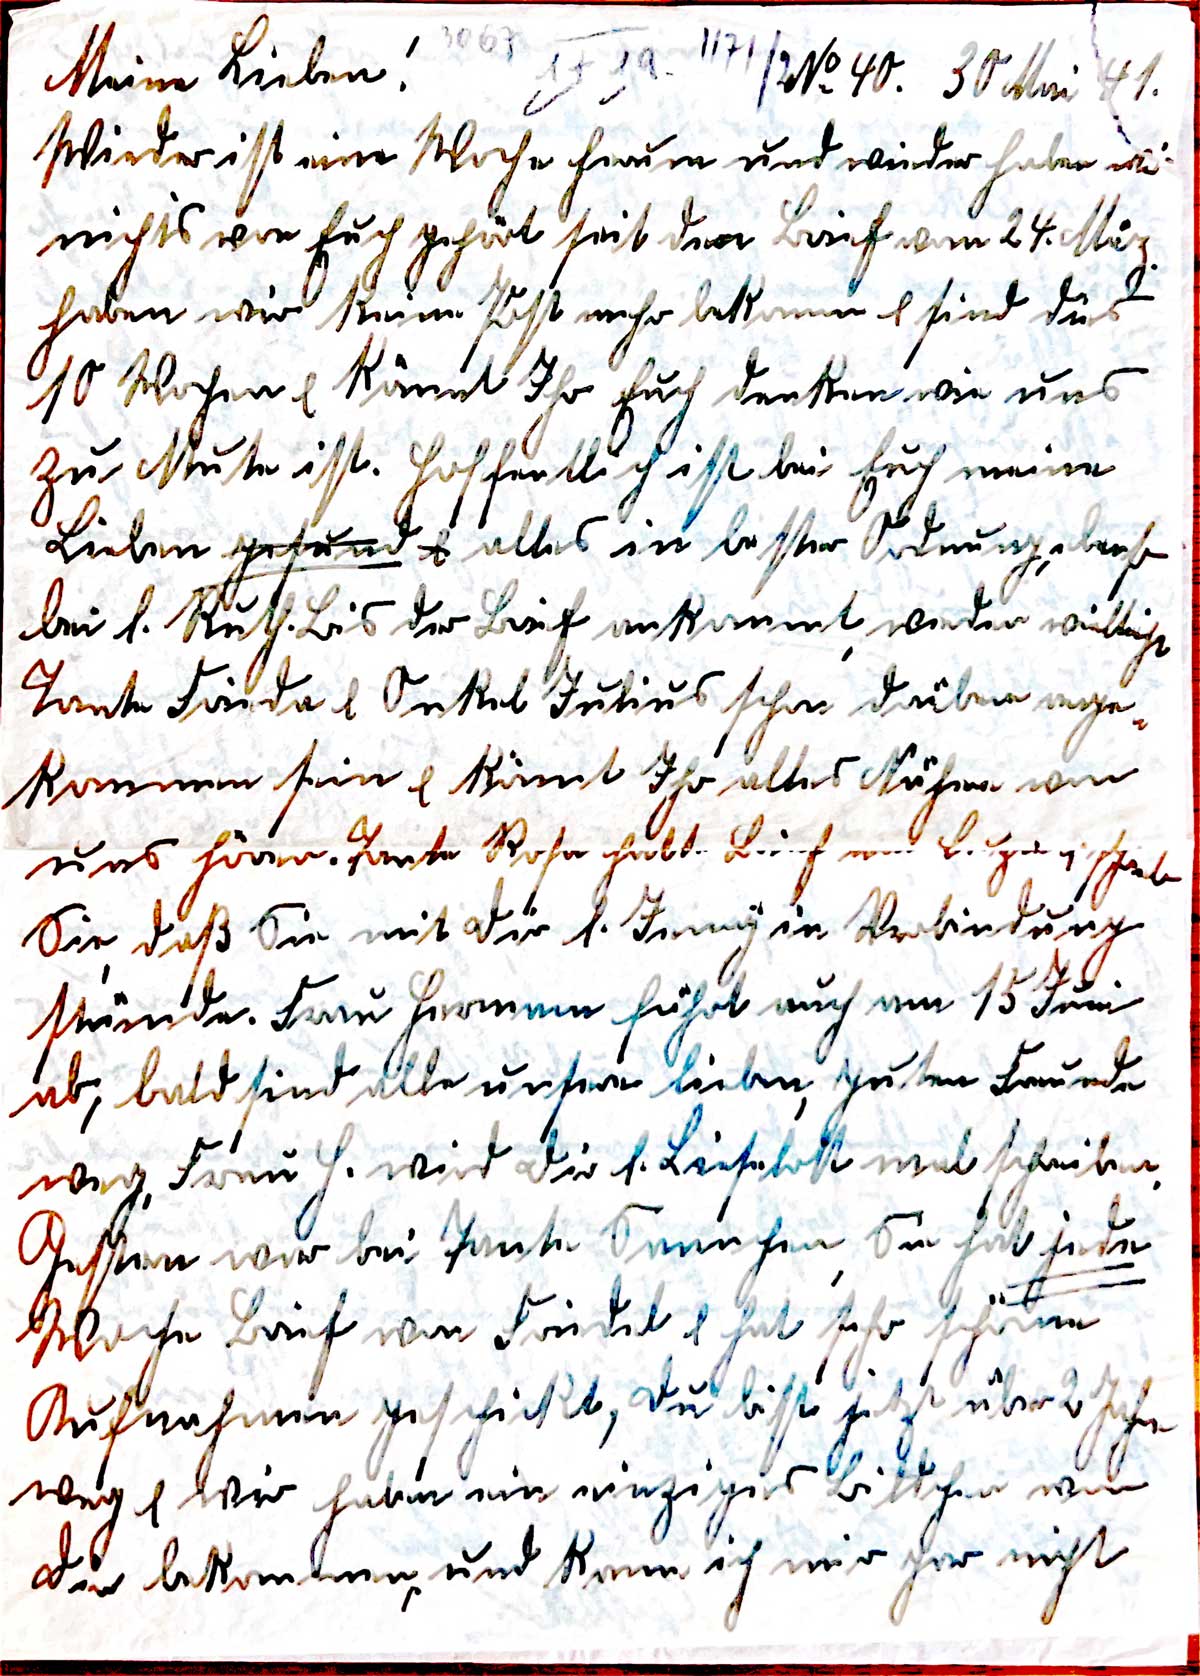 Meine Lieben! 3067 1171/2 No. 40. 30 Mai 41.
Wieder ist eine Woche herum und wieder haben wir
nichts von Euch gehört seit dem Brief vom 24. März
haben wir keine Post mehr bekommen & sind dies
10 Wochen & könnt Ihr Euch denken wie uns
zu Mute ist. Hoffentlich ist bei Euch meine
Lieben gesund & alles in bester Ordnung, ebenso
bei l. Ruth. Bis der Brief ankommt, werden vielleicht
Tante Frieda & Onkel Julius schon drüben ange-
kommen sein & könnt Ihr alles Nähere von
uns hören. Tante Rosa hatte Brief von & schreibt
Sie, daß Sie mit Dir l. Jenny in Verbindung
stünde. Frau Hermann fährt auch am 15 Juni
ab, bald sind alle unsere lieben, guten Freunde
weg, Frau H. wird Dir l. Liselott mal schreiben.
Gestern war bei Tante Sannchen, Sie hat jede
Woche Brief von Friedel & hat sehr schöne
Aufnahmen geschickt, Du bist jetzt über 2 Jahre
weg & wir haben ein einziges Bildchen von
Dir bekommen, und kann ich mir gar nicht